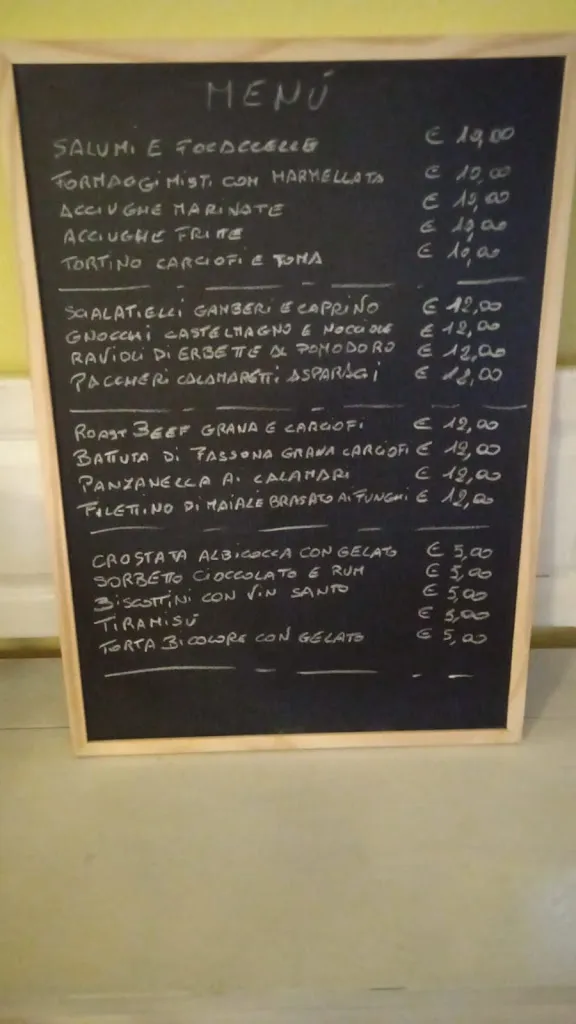 MENÚ
SALUMI E FOCACCELLE € 10,00
FORMAGGI MISTI CON MARMELLATA € 10,00
ACCIUGHE MARINATE € 10,00
ACCIUGHE FRITTE € 10,00
TORTINO CARCIOFI E TOMA € 10,00
SCIALATIELLI GAMBERI E CAPRINO € 12,00
GNOCCHI CASTELMAGNO E NOCCIOLE € 12,00
RAVIOLI DI ERBETTE AL POMODORO € 12,00
PACCHERI CALAMARETTI ASPARAGI € 12,00
ROAST BEEF GRANA E CARCIOFI € 12,00
BATTUTA DI FASSONA GRANA CARCIOFI € 12,00
PANZANELLA AI CALAMARI € 12,00
FILETTINO DI MAIALE BRASATO AI FUNGHI € 12,00
CROSTATA ALBICOCCA CON GELATO € 5,00
SORBETTO CIOCCOLATO E RUM € 5,00
BISCOTTINI CON VIN SANTO € 5,00
TIRAMISÚ € 5,00
TORTA BICOLORE CON GELATO € 5,00